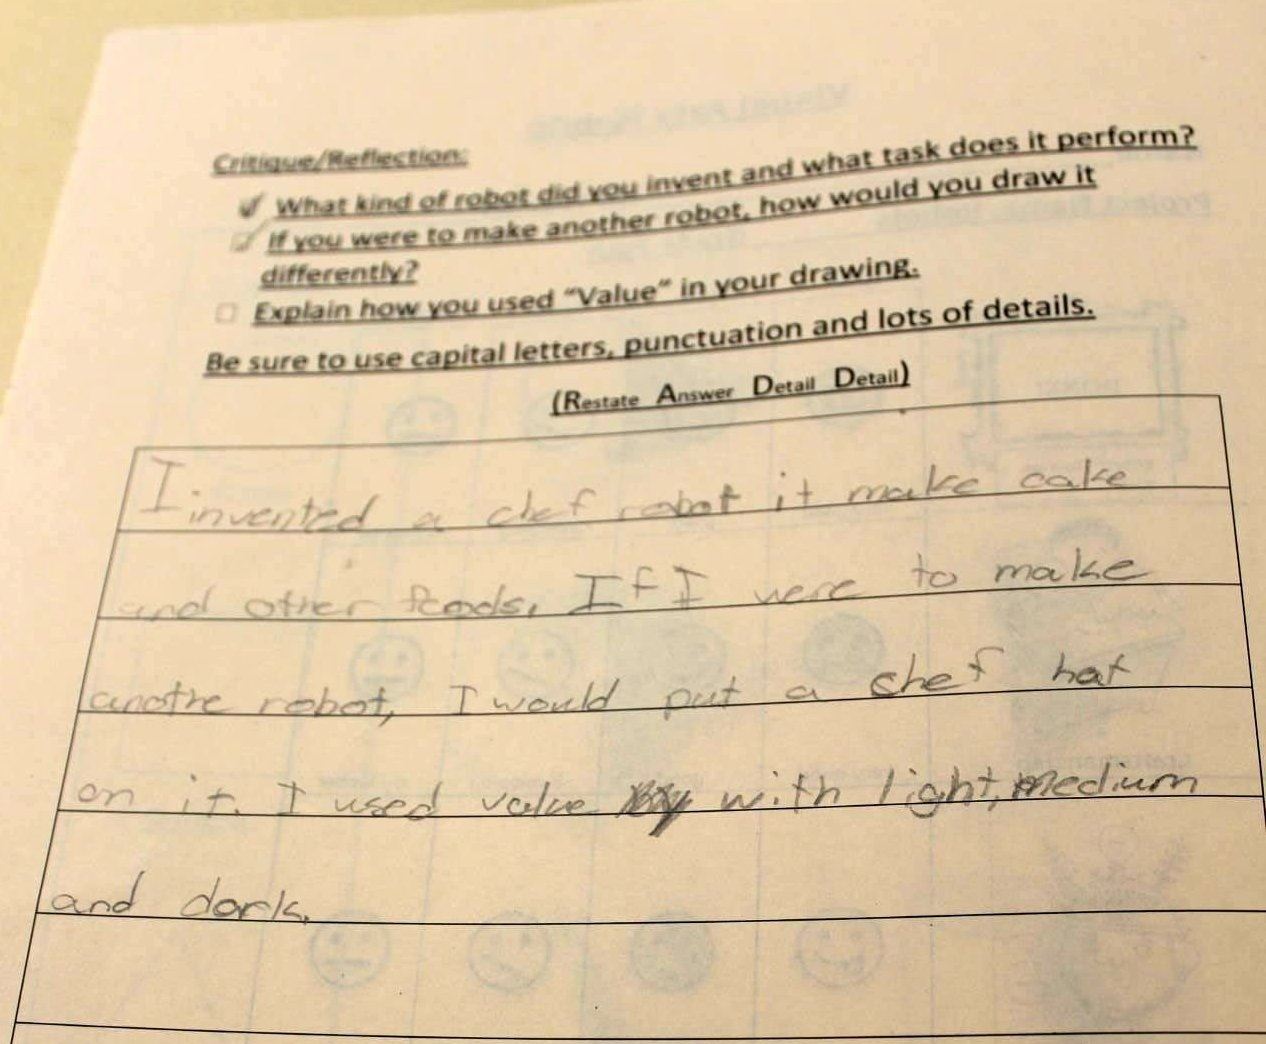 Critique/Reflection:
What kind of robot did you invent and what task does it perform?
If you were to make another robot, how would you draw it
differently?
Explain how you used “Value” in your drawing.
Be sure to use capital letters, punctuation and lots of details.
(Restate Answer Detail Detail)
I invented a chef robot it make cake
and other foods. If I were to make
anothe robot, I would put a chef hat
on it. I used value with light, medium
and dark.